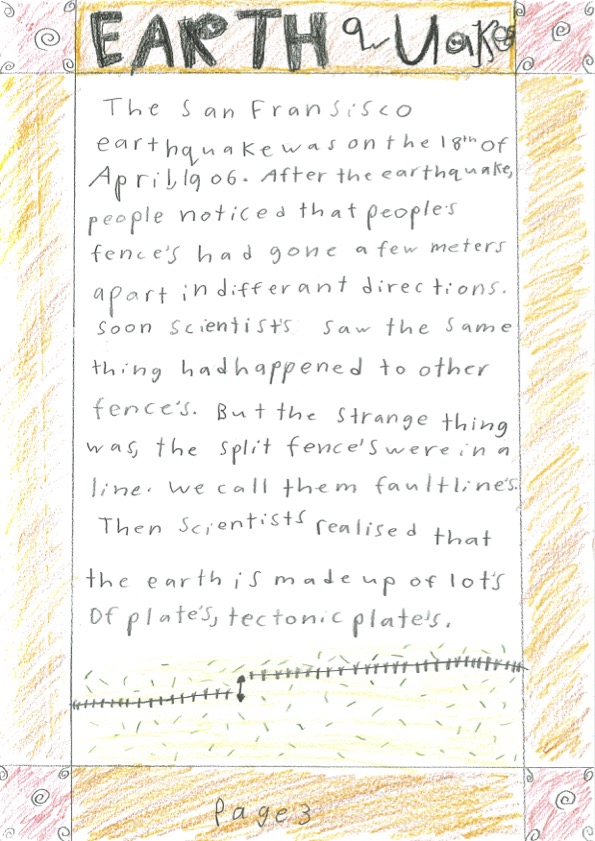 EARTH quake
The San Fransisco
earthquake was on the 18th of
April, 1906. After the earthquake,
people noticed that people's
fence's had gone a few meters
apart in differant directions.
Soon scientist's saw the same
thing had happened to other
fence's. But the strange thing
was, the split fence's were in a
line. We call them faultline's.
Then scientists realised that
the earth is made up of lot's
Of plate's, tectonic plate's.
Page 3